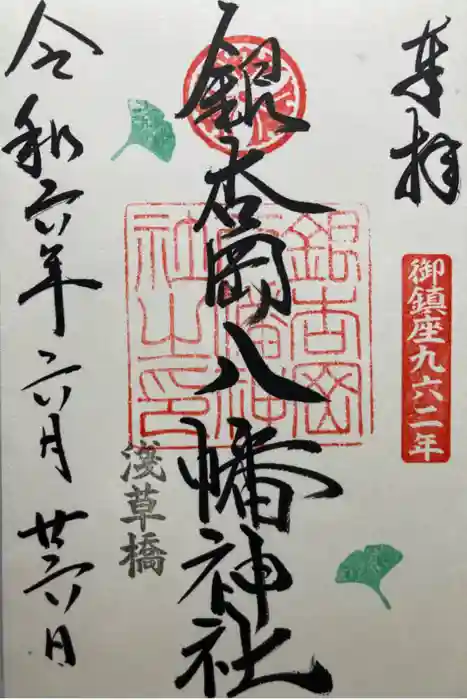 奉拝
御鎮座九六二年
銀杏岡八幡神社
銀杏岡
八幡神
社之印
浅草橋
令和六年 六月 廿六日